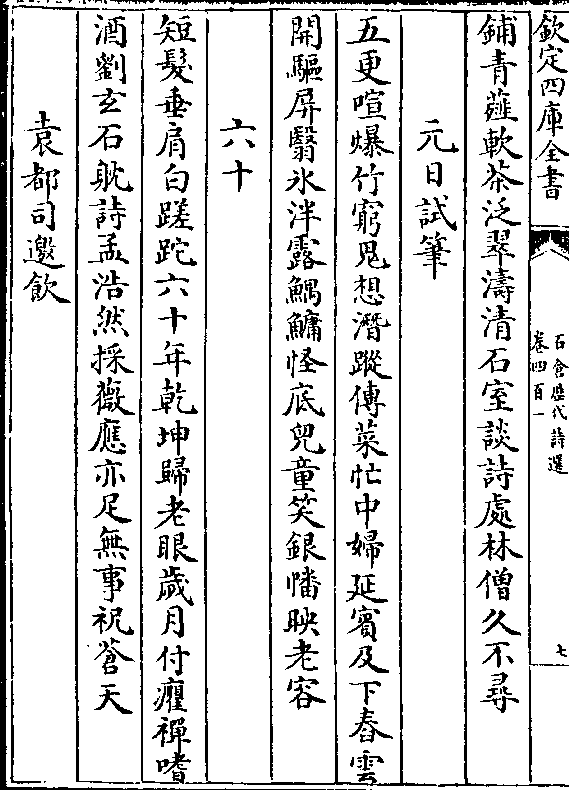 欽定四庫全書
石倉歷代詩選
卷四百一
七
鋪青薤軟茶泛翠濤清石室談詩處林僧久不尋
元日試筆
五更喧爆竹窮鬼想潛蹤傳菜忙中婦延賓及下舂雲
開驅屏翳氷泮露鰅鱅怪底兒童笑銀幡映老容
六十
短髮垂肩白蹉跎六十年乾坤歸老眼歲月付癯禪嗜
酒劉玄石躭詩孟浩然採薇應亦足無事祝蒼天
袁都司邀飲